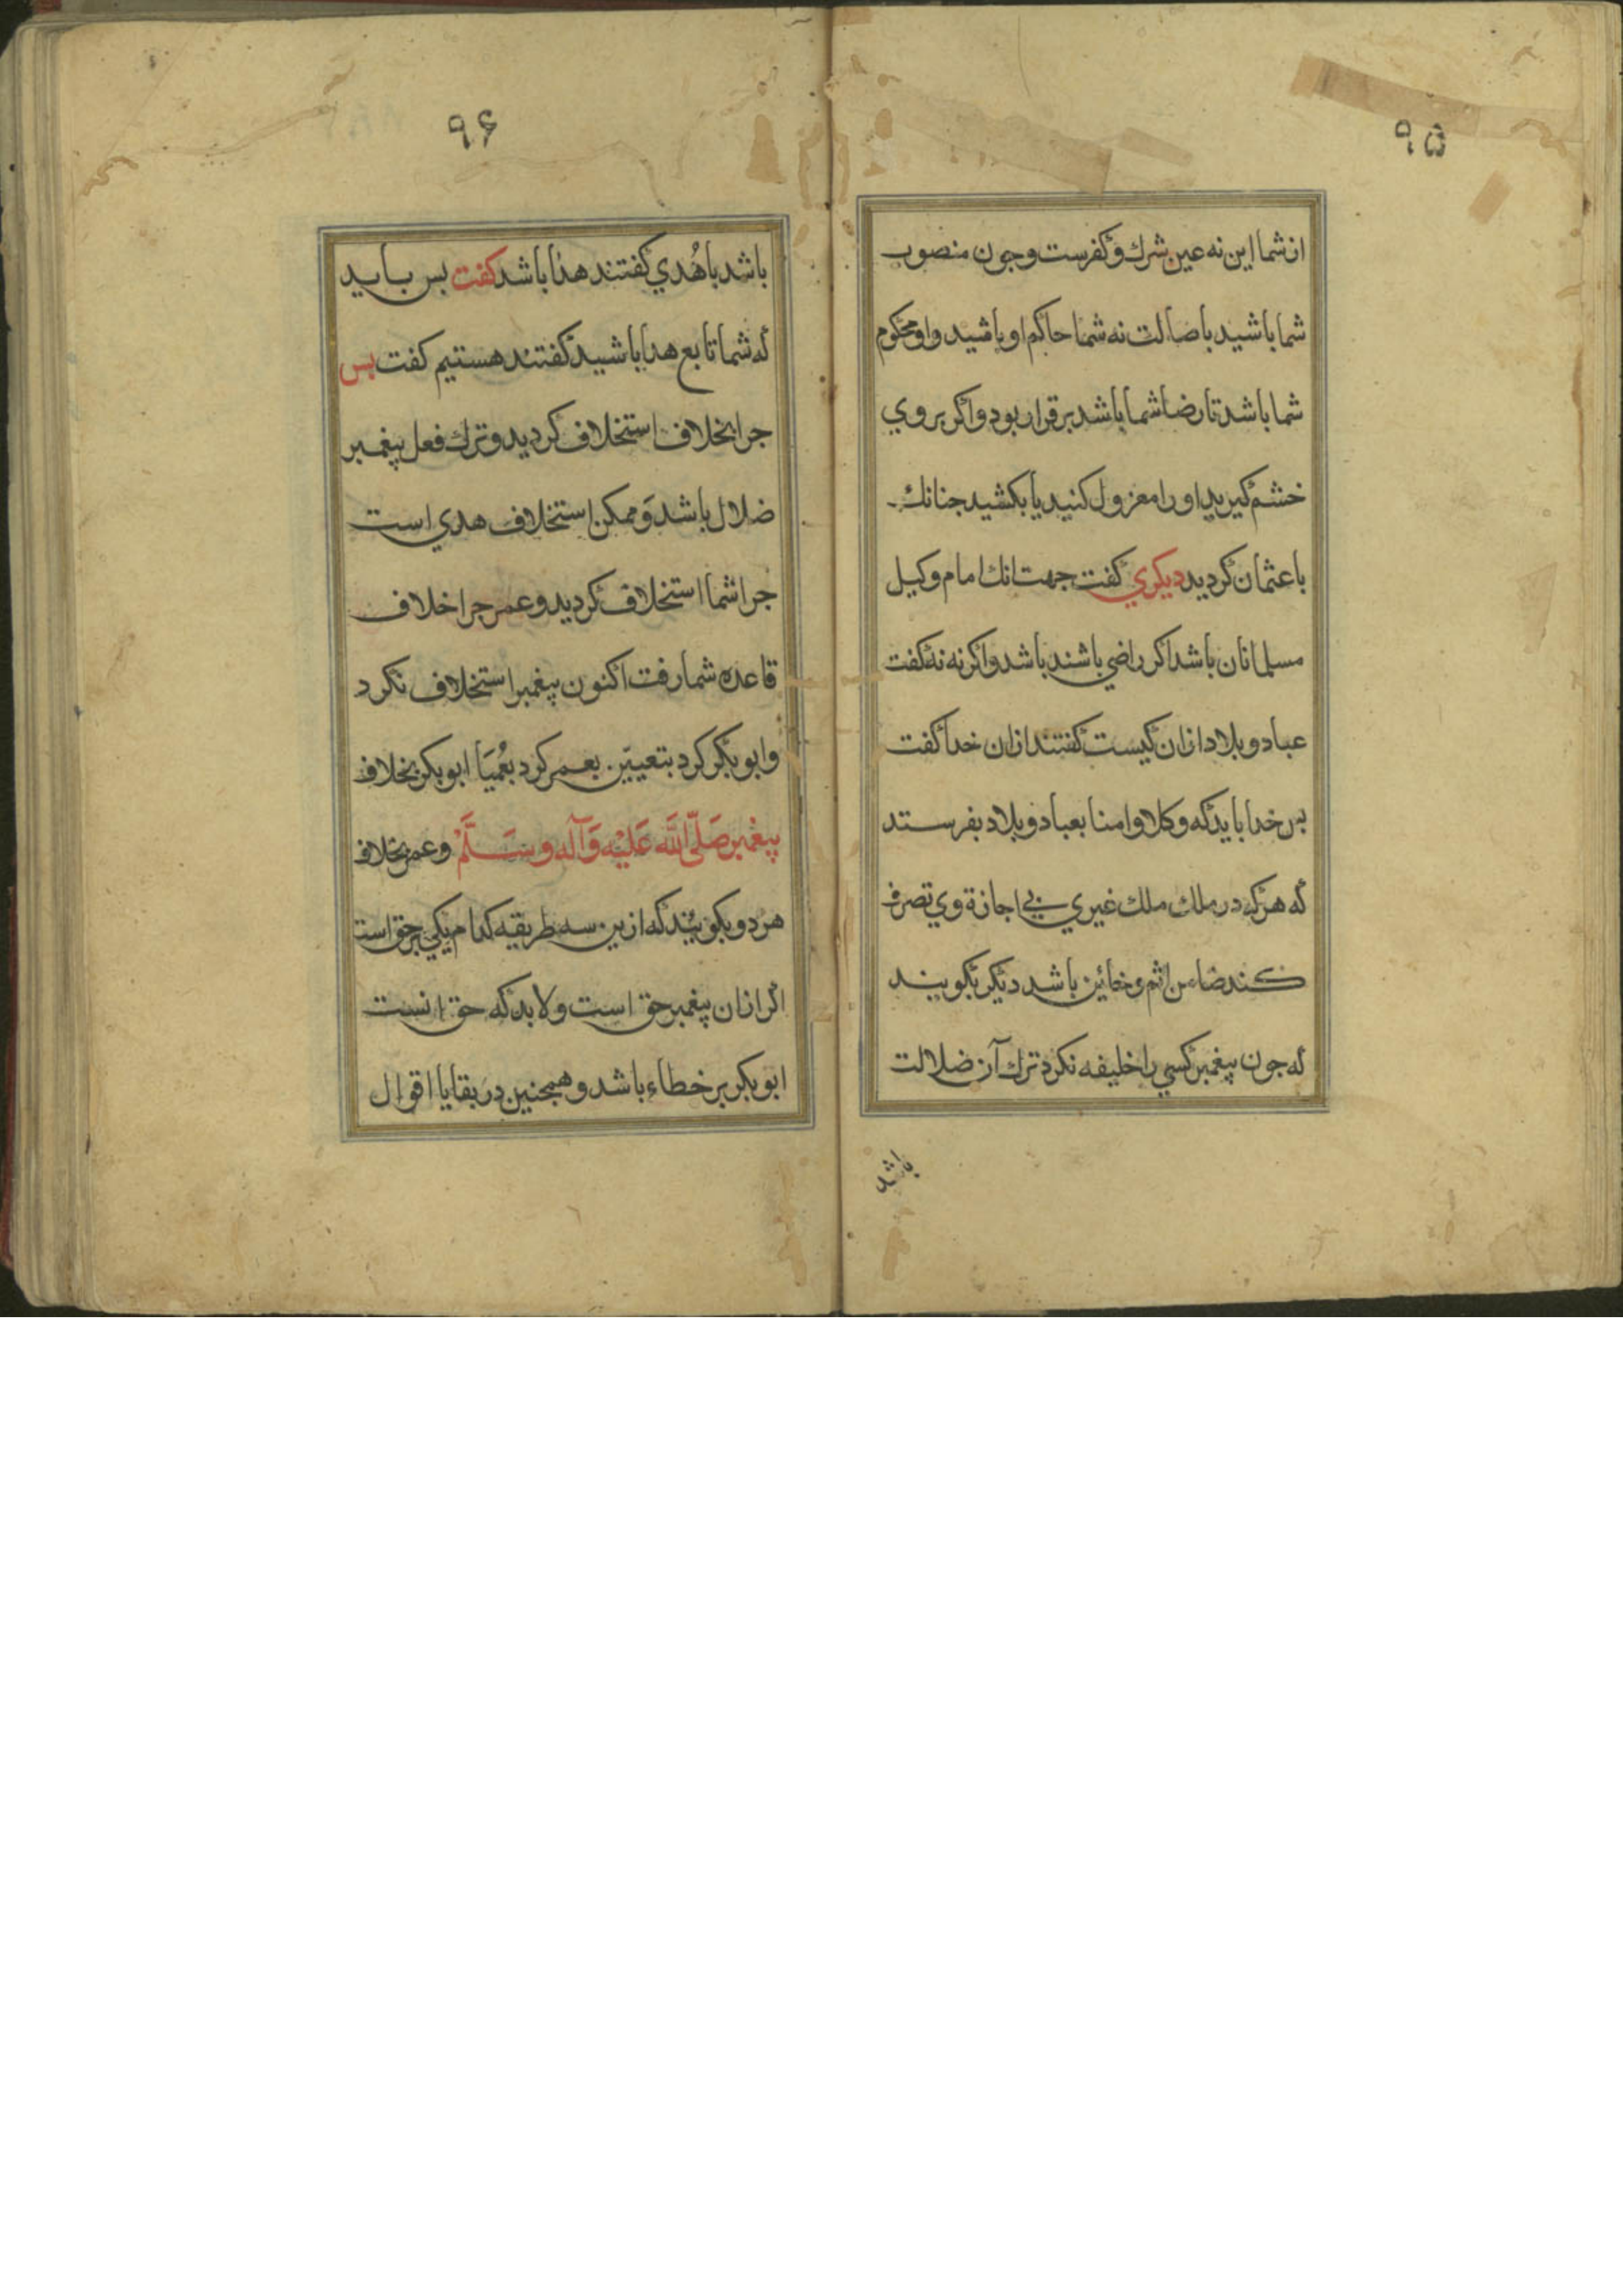 ۹۵
ازشما این نه عین شرك و كفرست و جون منصوب
شما باشید باصالت نه شما حاكم او باشید و او محكوم
شما باشد تا رضا شما باشد برقرار بود و اكر بروي
خشم كیرید او را معزول كنید یا بكشید جنانك
با عثمان كردید دیكري كفت جهت انك امام وكیل
مسلمانان باشد اكر راضي باشند باشد و اكر نه نه كفت
عباد و بلاد ازان كیست كفتند ازان خدا كفت
بس خدا باید كه وكلا و امنا بعباد و بلاد بفرستد
كه هركه در ملك ملك غیري بي اجازة وي تصرف
كند ضامن اثم و خائین باشد دیكر بكویید
كه جون پیغمبر كسي را خلیفه نكرد ترك آن ضلالت
باشد
۹۶
باشد یا هُدي كفتند هذا باشد كفت بس باید
كه شما تابع هدا باشید كفتند هستیم كفت بس
جرا بخلاف استخلاف كردید و ترك فعل پیغمبر
ضلال باشد وَ ممكن استخلاف هدي است
جرا شما استخلاف كردید و عمر جرا خلاف
قاعده شما رفت اكنون پیغمبر استخلاف نكرد
و ابوبكر كرد بتعیین بعمر كرد بعُمیَا ابوبكر بخلاف
پیغمبر صَلّی اللّٰه عَلَیْه وَآله وسَلَّمْ و عمر بخلاف
هردو بكویید كه ازین سه طریقه كدام یكي بر حق است
اكر ازان پیغمبر حق است و لابد كه حق انست
ابوبكر بر خطاء باشد و همجنین در بقایا اقوال